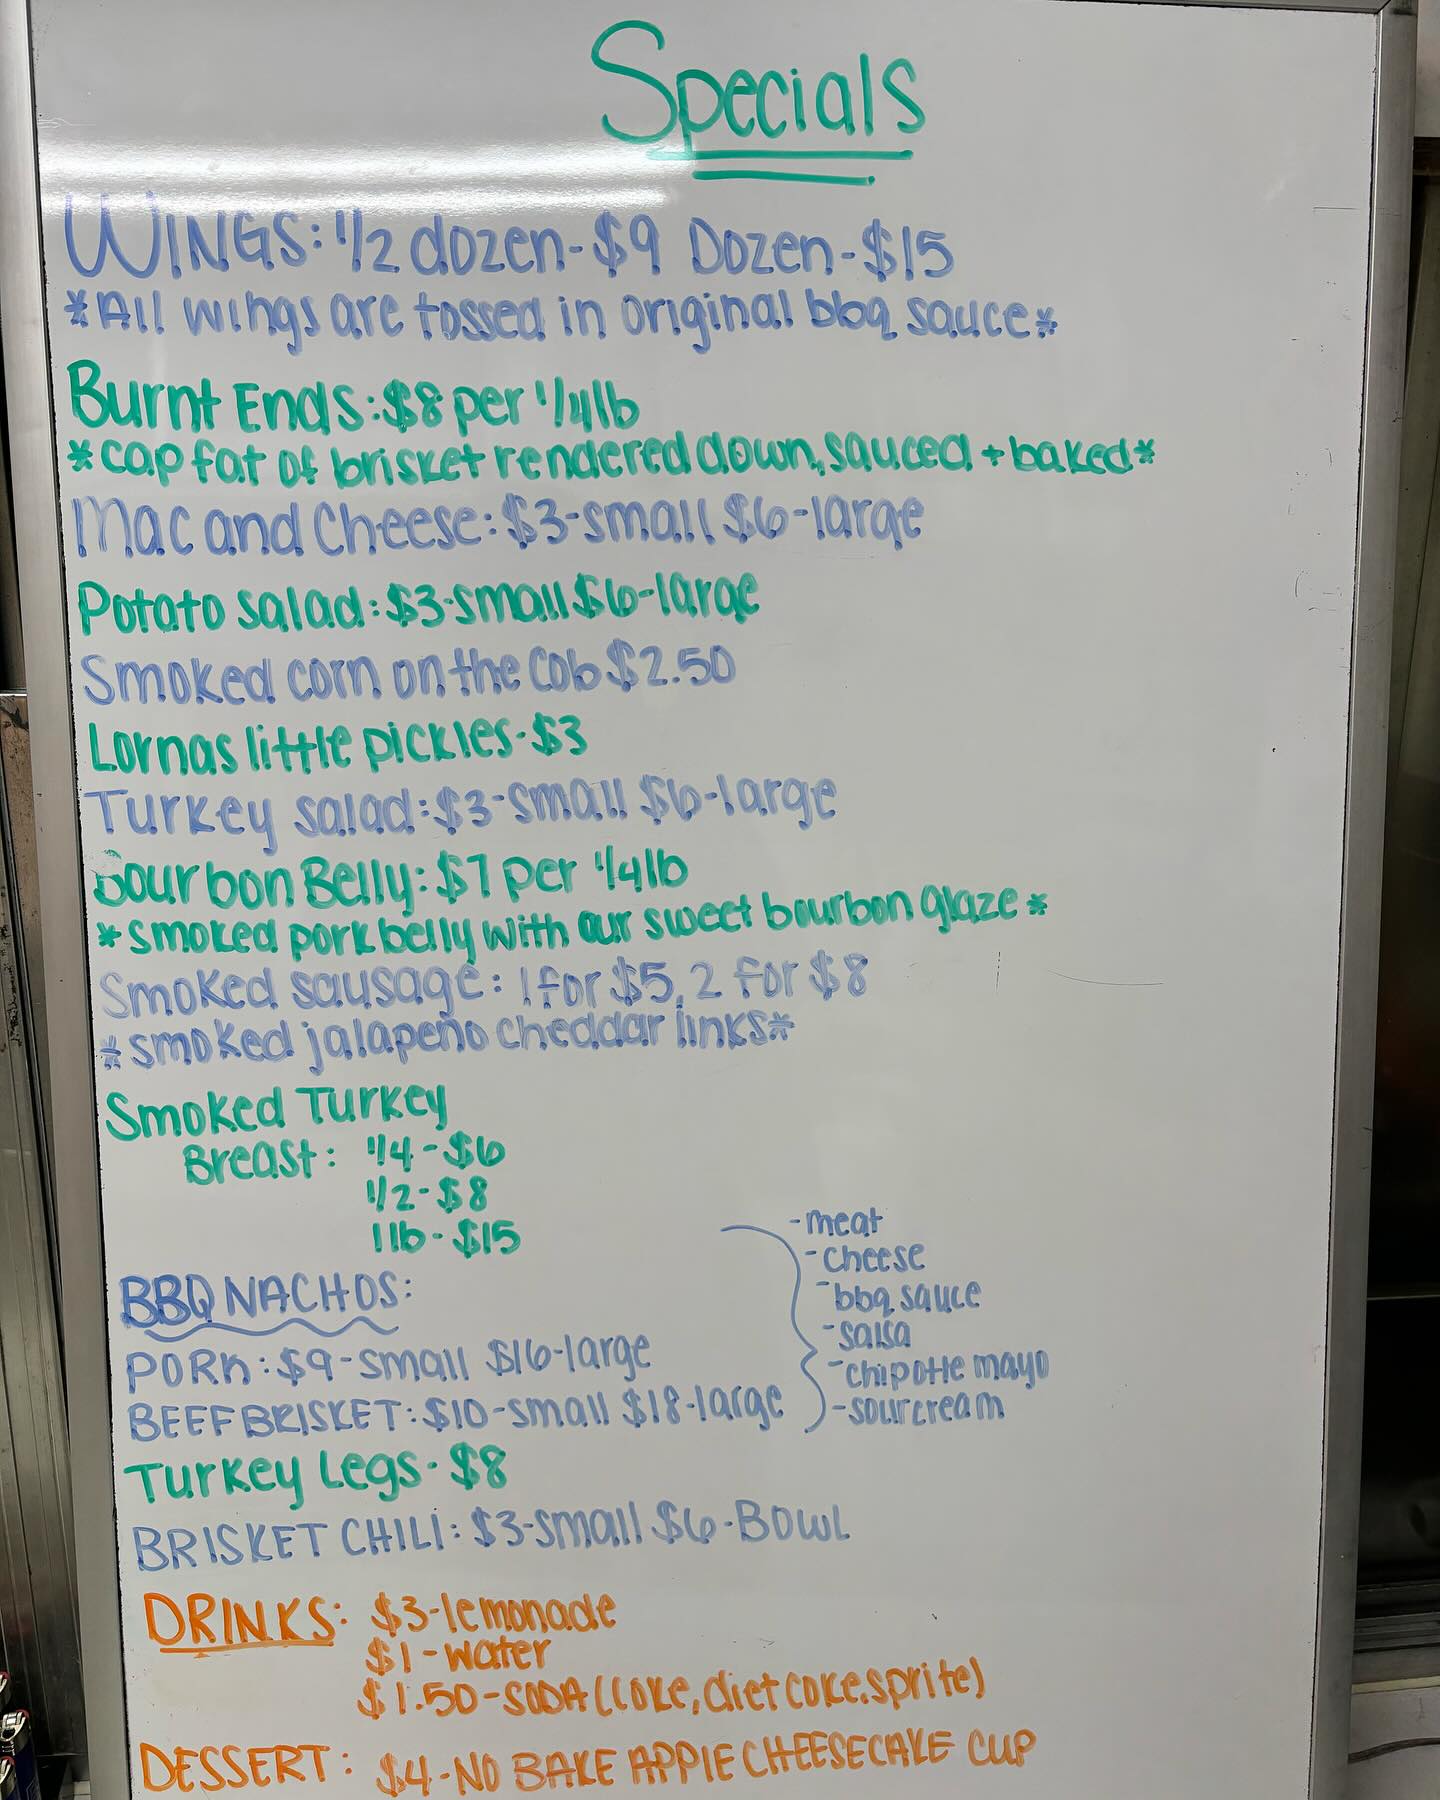 Specials
WINGS: 1/2 dozen-$9 Dozen-$15
*All wings are tossed in original bbq sauce*
Burnt Ends: $8 per 1/4 lb
*cap fat of brisket rendered down, sauced + baked*
Mac and Cheese: $3-small $6-large
Potato salad: $3-small $6-large
Smoked corn on the cob $2.50
Lornas little pickles-$3
Turkey salad: $3-small $6-large
Bourbon Belly: $7 per 1/4 lb
*smoked pork belly with our sweet bourbon glaze*
Smoked sausage: 1 for $5, 2 for $8
*smoked jalapeño cheddar links*
Smoked Turkey
Breast: 1/4-$6
1/2-$8
1 lb-$15
BBQ NACHOS:
PORK: $9-small $16-large
BEEF BRISKET: $10-small $18-large
-meat
-cheese
-bbq sauce
-salsa
-chipotle mayo
-sourcream
Turkey Legs-$8
BRISKET CHILI: $3-small $6-BOWL
DRINKS: $3-lemonade
$1-water
$1.50-SODA (coke, diet coke, sprite)
DESSERT: $4-NO BAKE APPIE CHEESECAKE CUP